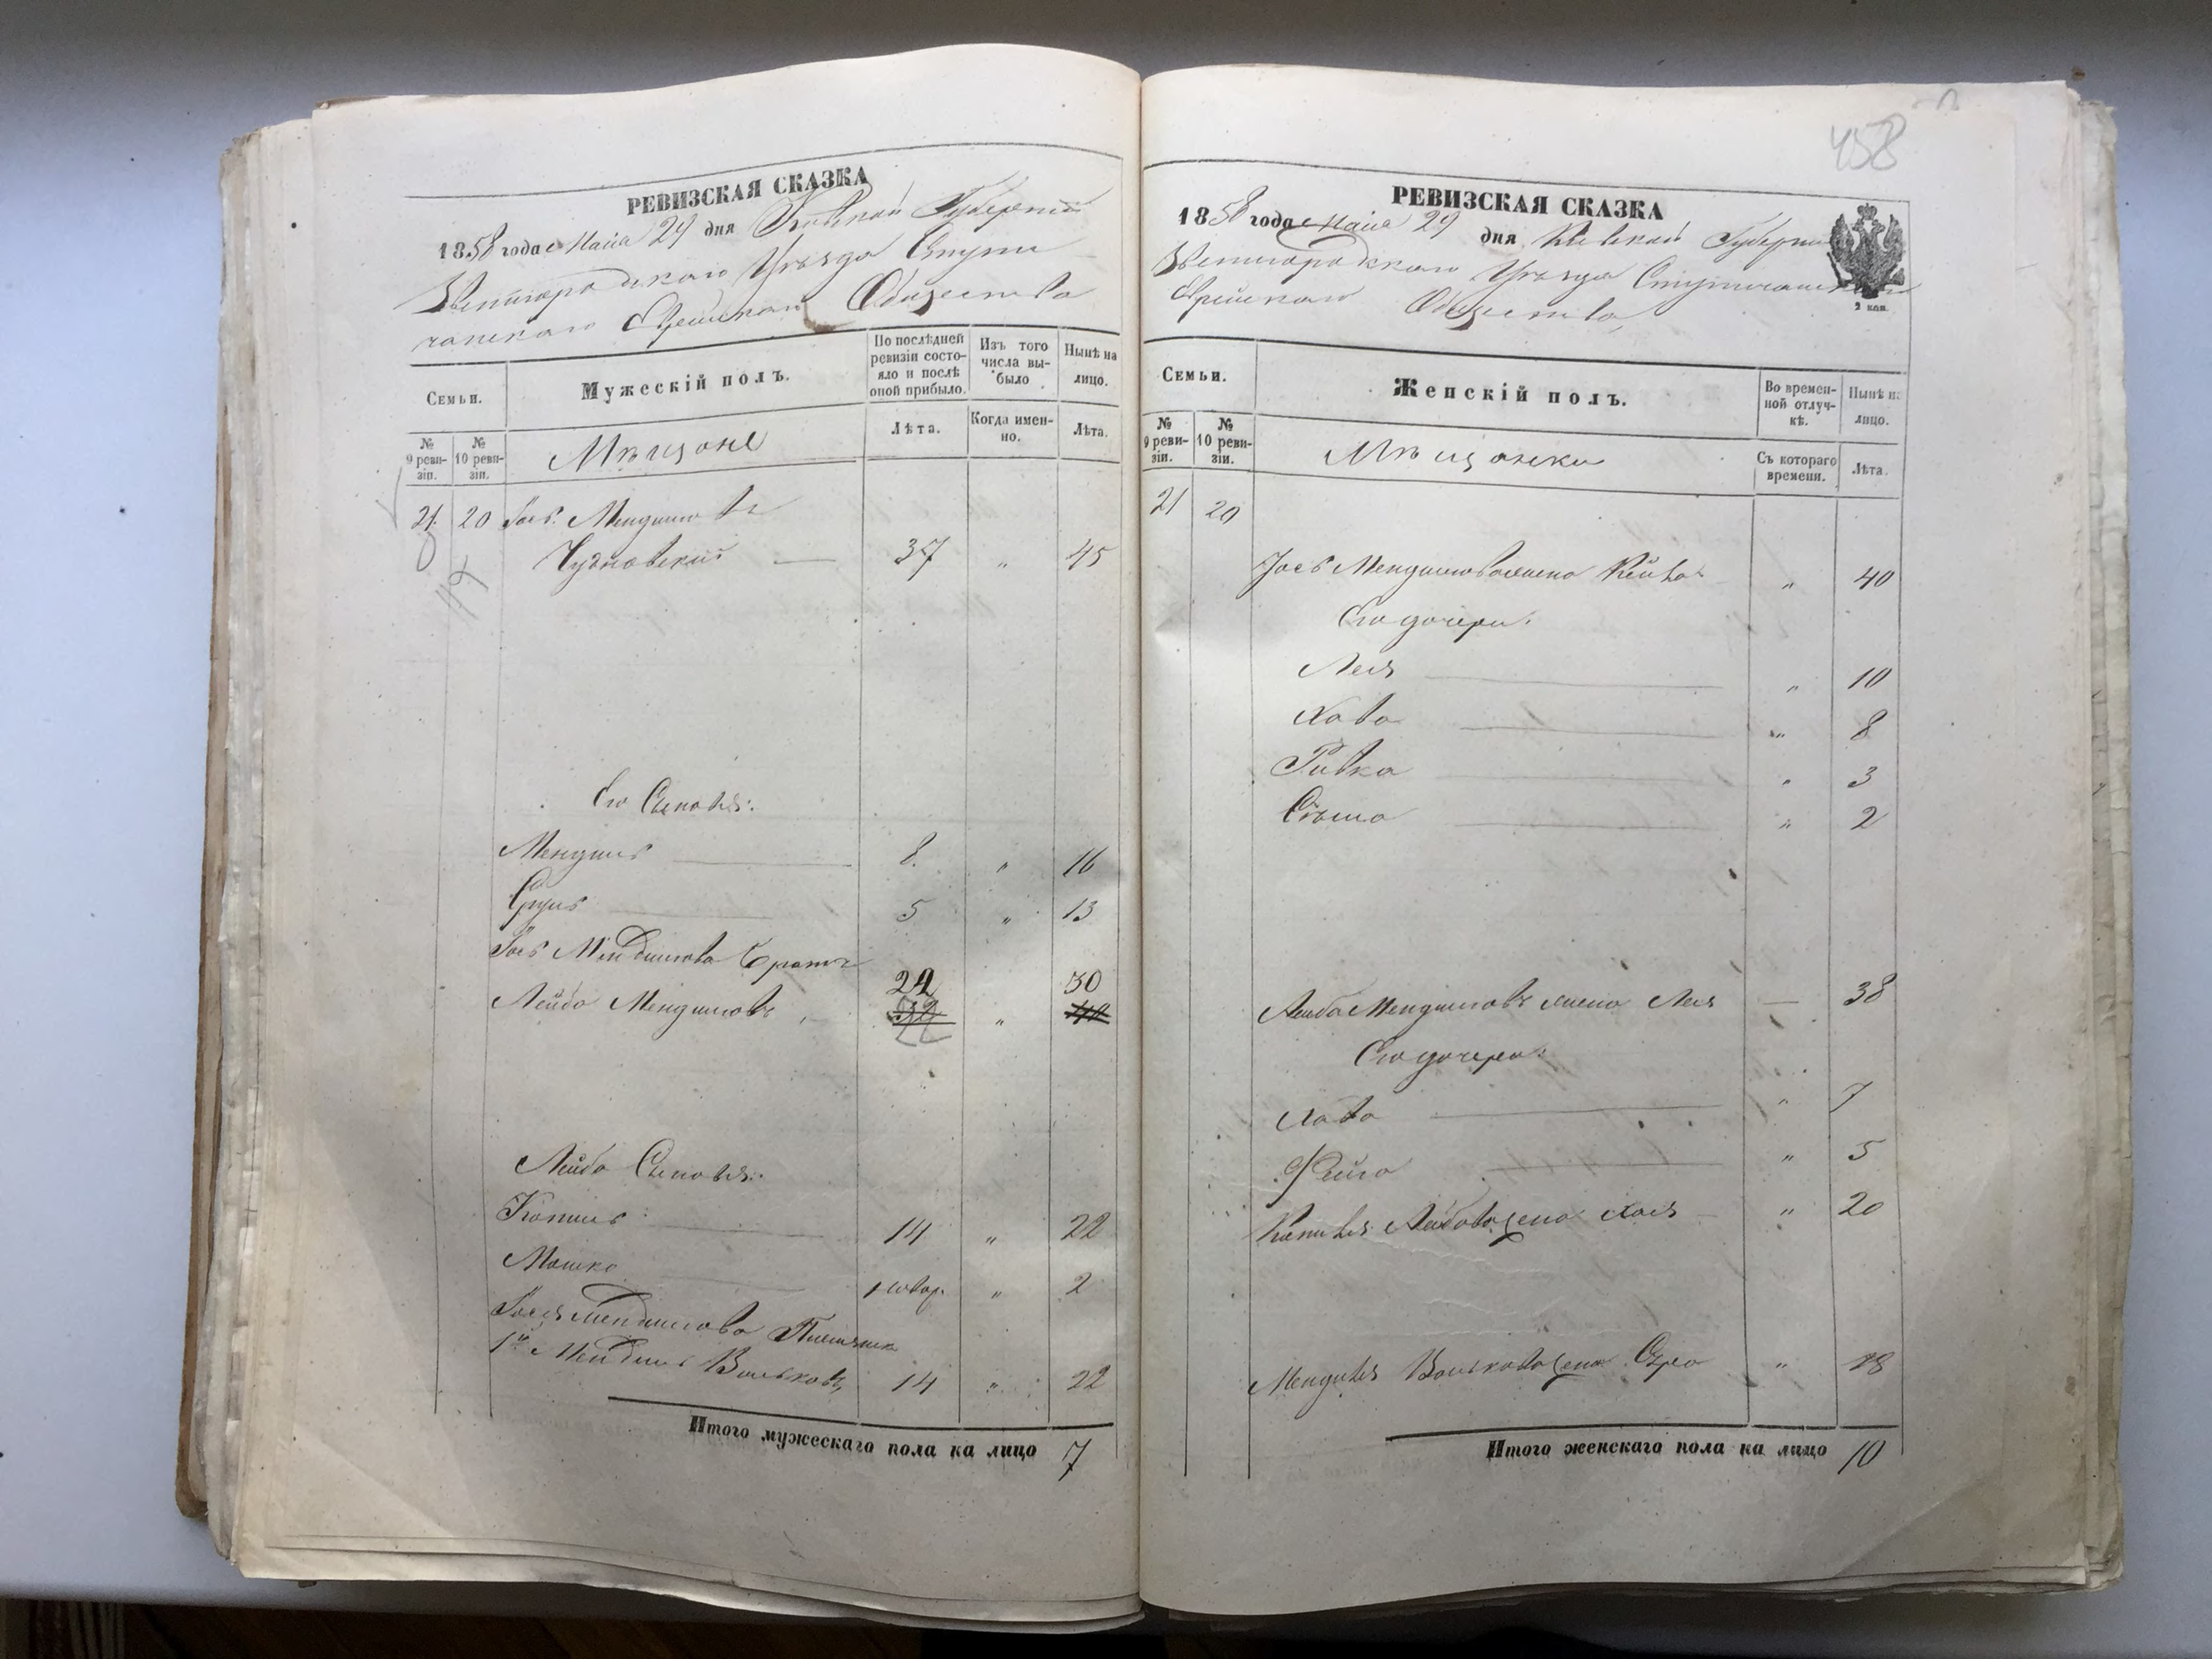 РЕВИЗСКАЯ СКАЗКА
1858 года Маія 29 дня Кіевской Губерніи
Звенигородскаго Уѣзда Стути
чанскаго Еврейскаго Общества
Семьи.
Мужескій полъ.
По послѣдней ревизіи состояло и послѣ оной прибыло.
Изъ того числа выбыло
Нынѣ на лицо.
№ 9 ревизіи.
№ 10 ревизіи.
Мѣщане
Лѣта.
Когда именно.
Лѣта.
21. 20 Іось Мендилевъ
Чудновскій — 37 " 45
Его Сыновья:
Мендиль 8. " 16
5 " 13
Іося Мендилева Братъ
22 30
Лейба Мендилевъ " 
Лейба Сыновья:
Копиль 14 " 22
Мошко новор. " 2
Іося Мендилева Племяник
1й Мендиль Вольковъ 14 " 22
Итого мужескаго пола на лицо 7
458
РЕВИЗСКАЯ СКАЗКА
1858 года Маія 29 дня Кіевской Губерніи
Звенигородскаго Уѣзда Стутичанскаго
Еврейскаго Общества
2 коп.
Семьи.
Женскій полъ.
Во временной отлучкѣ.
Нынѣ на лицо.
№ 9 ревизіи.
№ 10 ревизіи.
Мѣщанки
Съ котораго времени.
Лѣта.
21 20
Іось Мендилева жена Кейва " 40
Его дочери:
Лея " 10
Хава " 8
Ривка " 3
Сѣма " 2
Лейба Мендилевъ жена Лея — 38
Его дочери:
Хава " 7
Фейга " 5
Лейбова жена Хая " 20
Вolькова жена Сура " 18
Итого женскаго пола на лицо 10